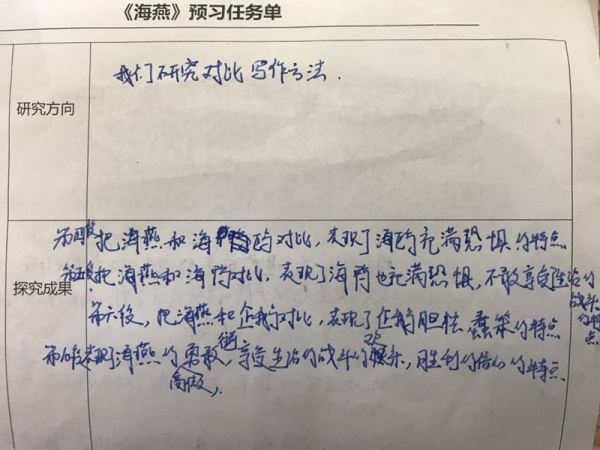 《海燕》预习任务单
研究方向
我们研究对比写作方法.
探究成果
把海燕和海鸥对比,表现了海鸥充满恐惧的特点
第五段把海燕和海鸭对比,表现了海鸭也充满恐惧,不敢享受生活的战斗的特点
第六段,把海燕和企鹅对比,表现了企鹅胆怯蠢笨的特点
表现了海燕的勇敢,高傲,享受生活的战斗的欢乐,胜利的信心的特点